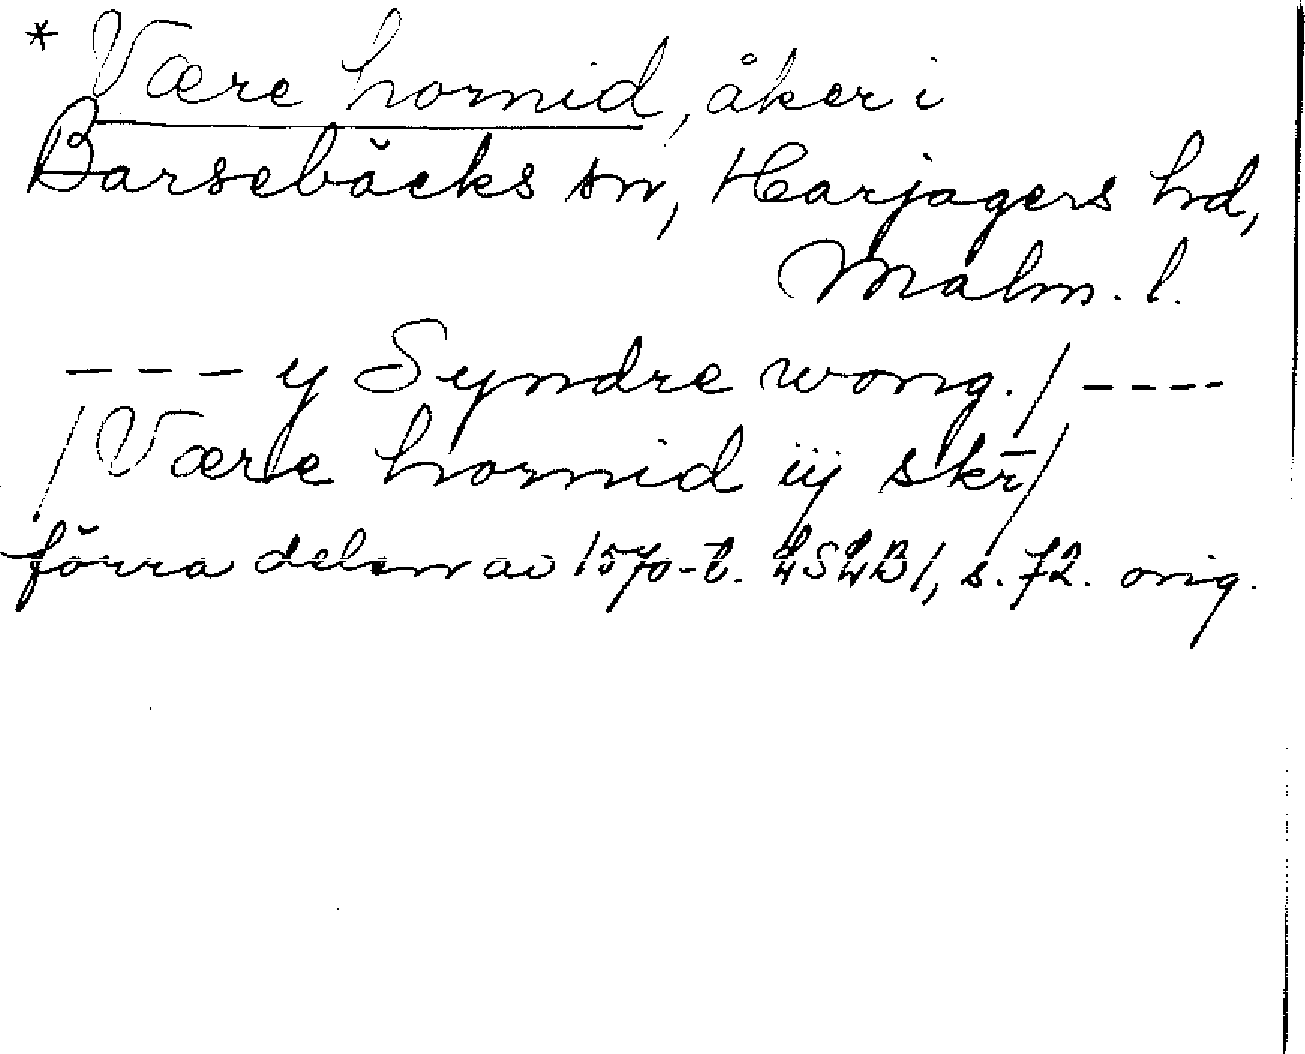 * Være hornid, åker i
Barsebäcks sn, Harjagers hd,
Malm. l.
--- y Syndre wong. / ----
/ Være hornid iij skr̄ /
förra delen av 1570-t. LSLB1, s. 72. orig.